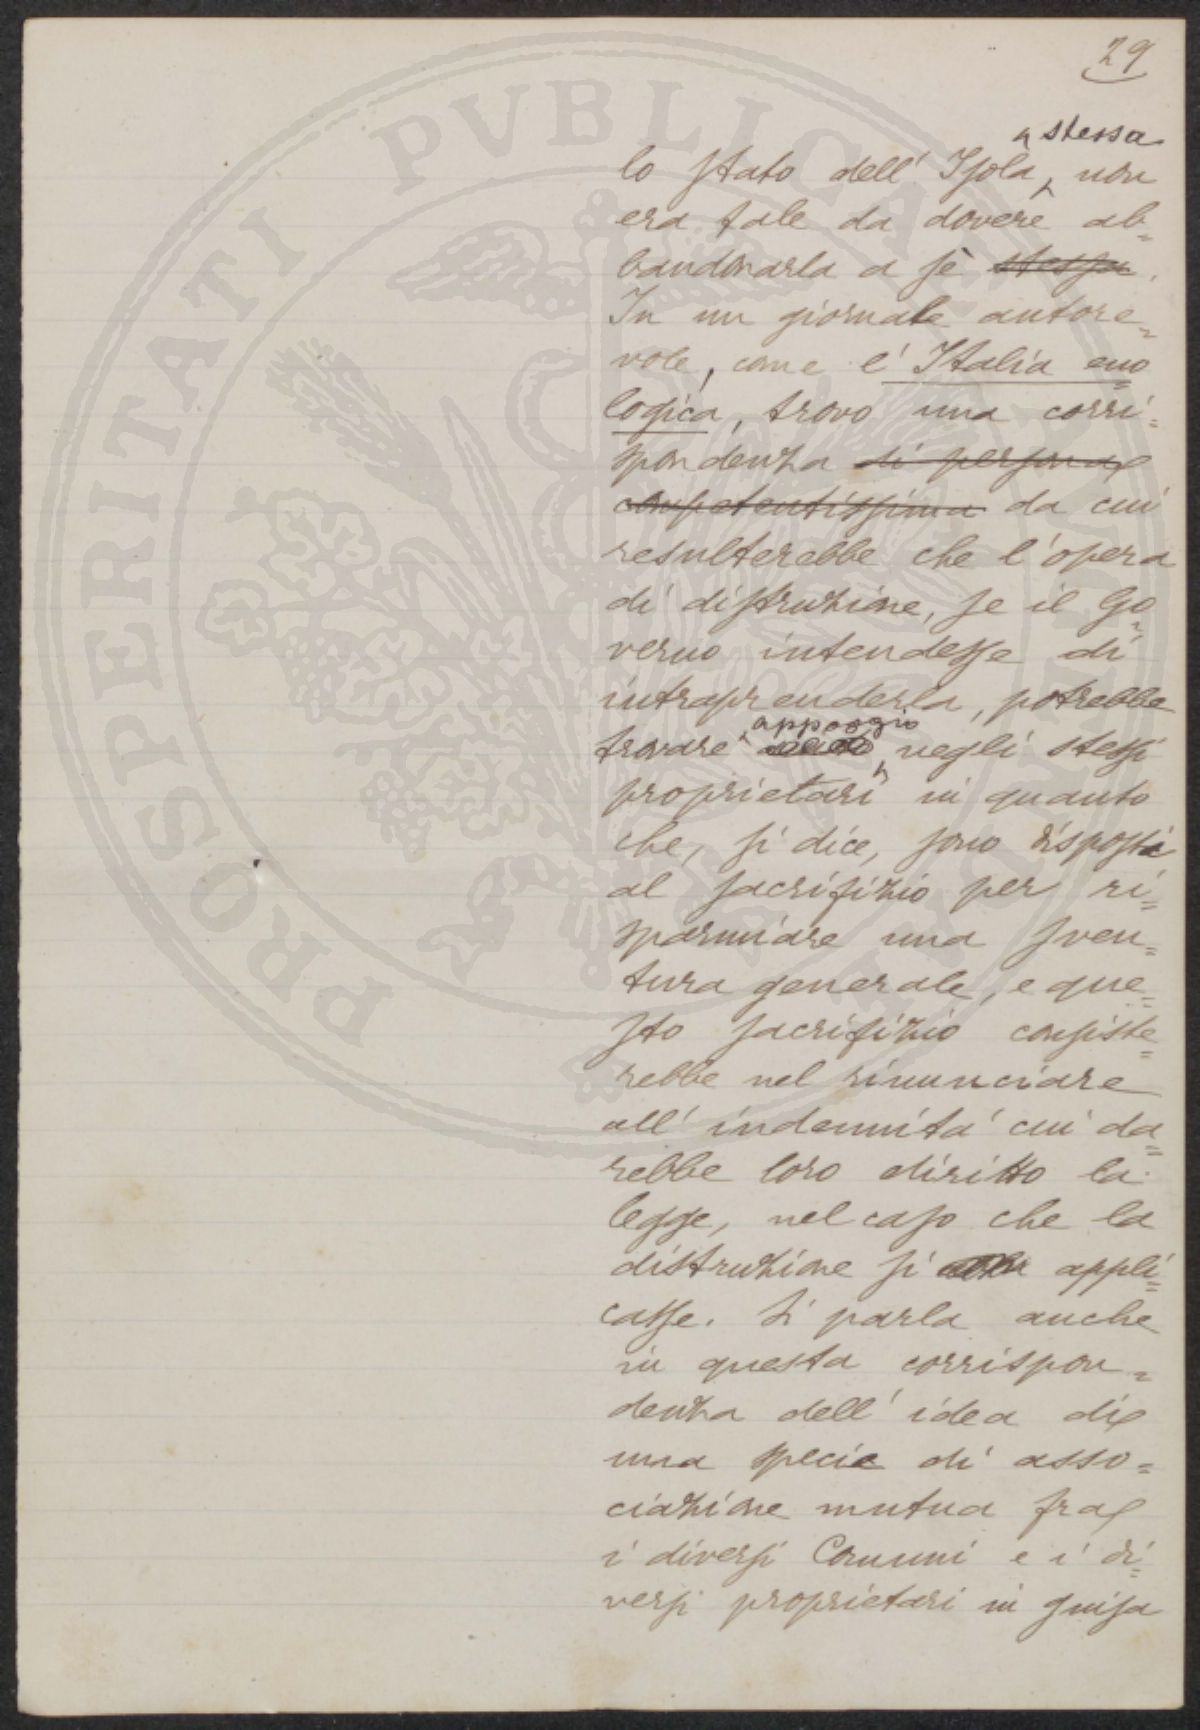 29
stessa
lo stato dell' Isola, non
era tale da dovere ab=
bandonarla a sè stessa.
In un giornale autore=
vole, come l' Italia eno=
logica, trovo una corri=
spondenza di persona
competentissima da cui
resulterebbe che l'opera
di distruzione, se il Go=
verno intendesse di
intraprenderla, potrebbe
appoggio
trovare negli stessi
proprietari in quanto
che, si dice, sono disposti
al sacrifizio per ri=
sparmiare una sven=
tura generale, e que=
sto sacrifizio consiste=
rebbe nel rinunciare
all' indennità cui da=
rebbe loro diritto la
legge, nel caso che la
distruzione si appli=
casse. Si parla anche
in questa corrispon=
denza dell' idea di
una specie di asso=
ciazione mutua fra
i diversi Comuni e i di=
versi proprietari in guisa
PROSPERITATI PUBLICAE